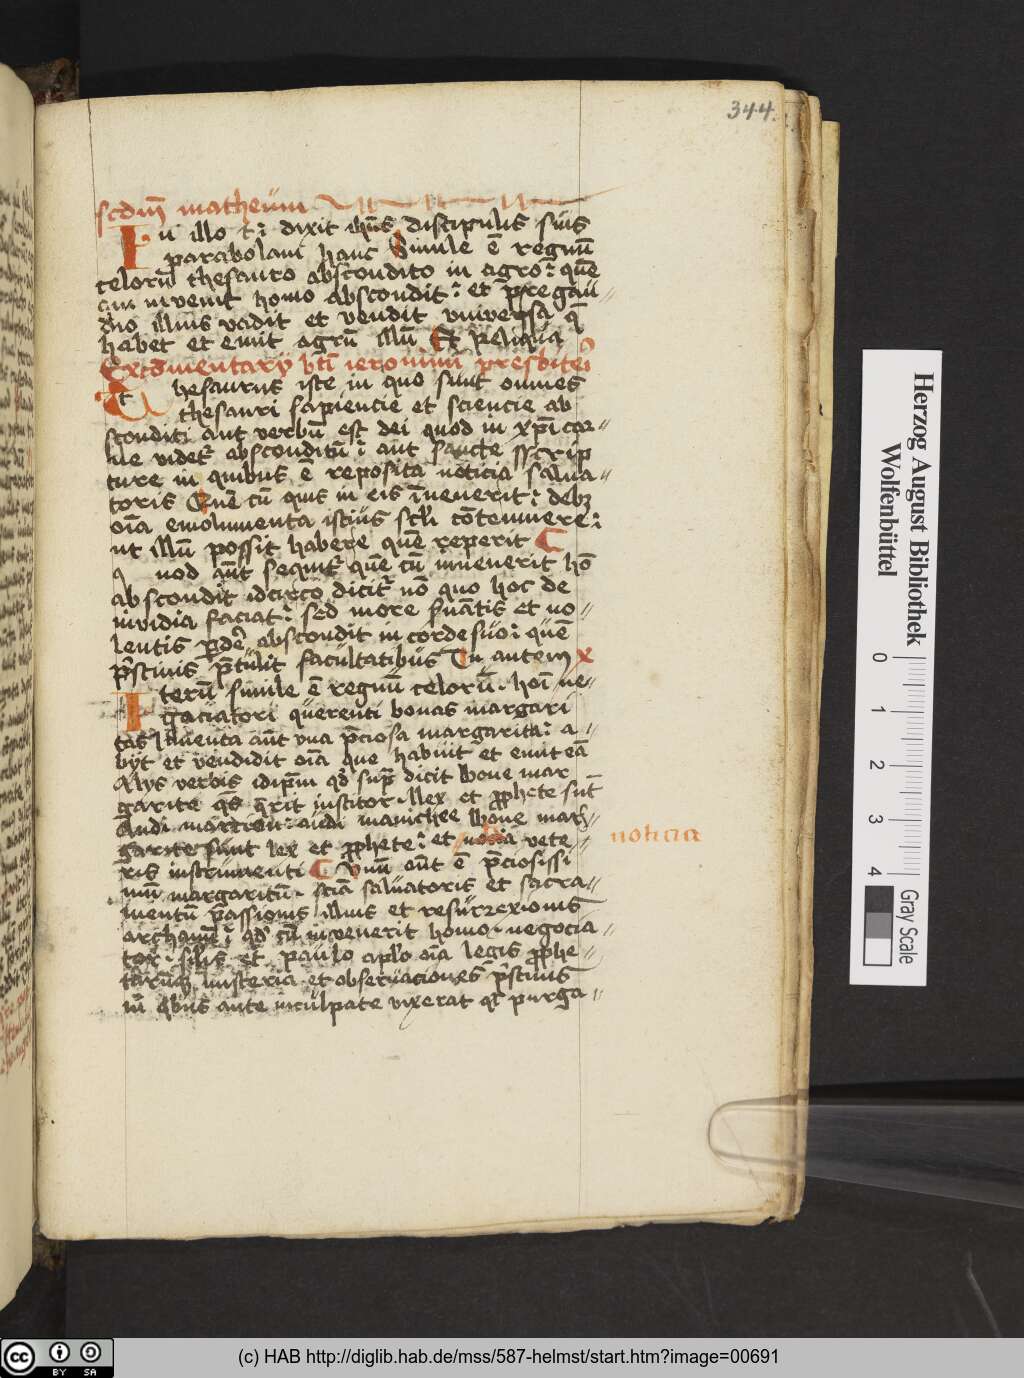 344.
scdm matheum
In illo t'i dixit ihus discipulis suis
parabolam hanc Simile e regnu
celoru thesauro abscondito in agro: que
qui invenit homo abscondit: et pre gau
dio illius vadit et vendit universa q
habet et emit agru illu Et reliqua
Ex comentarij bti ieronimi presbiteri
Thesaurus iste in quo sunt omnes
thesauri sapiencie et sciencie ab
sconditi aut verbu est dei quod in xpi car
ne videt absconditu: aut sancte scrip
ture in quibus e reposita noticia salua
toris Que cu quis in eis invenerit: debz
oia emolumenta istius scli cotemnere:
ut illu possit habere que reperit
quod aut sequit que cu invenerit ho
abscondit idcirco dicit no quo hoc de
invidia faciat: sed more servatis et no
lentis pde abscondit in corde suo: que
pstinis ptulit facultatibus Tu autem
Iteru simile e regnu celoru hoi ne
gaciatori querenti bonas margari
tas Inventa aut una pciosa margarita: a
bijt et vendidit oia que habuit et emit ea
Alijs verbis idipm qd supra dicit Bone mar
garite qs qrit institor lex et prophete sut
Audi marcion: audi manichee Bone mar
garite sunt lex et prophete: et noticia vete
ris instrumenti Unu aut e pciosissi
mu margaritu scia saluatoris et sacra
mentu passionis illius et resurrexionis
archanu: qd cu invenerit homo negocia
tor silis et paulo aplo oia legis prophe
tarumq misteria et observaciones pstinas
in qbus ante inculpate vixerat qi purga
noticia
Herzog August Bibliothek
Wolfenbüttel
0 1 2 3 4
Gray Scale
cc BY SA
(c) HAB http://diglib.hab.de/mss/587-helmst/start.htm?image=00691